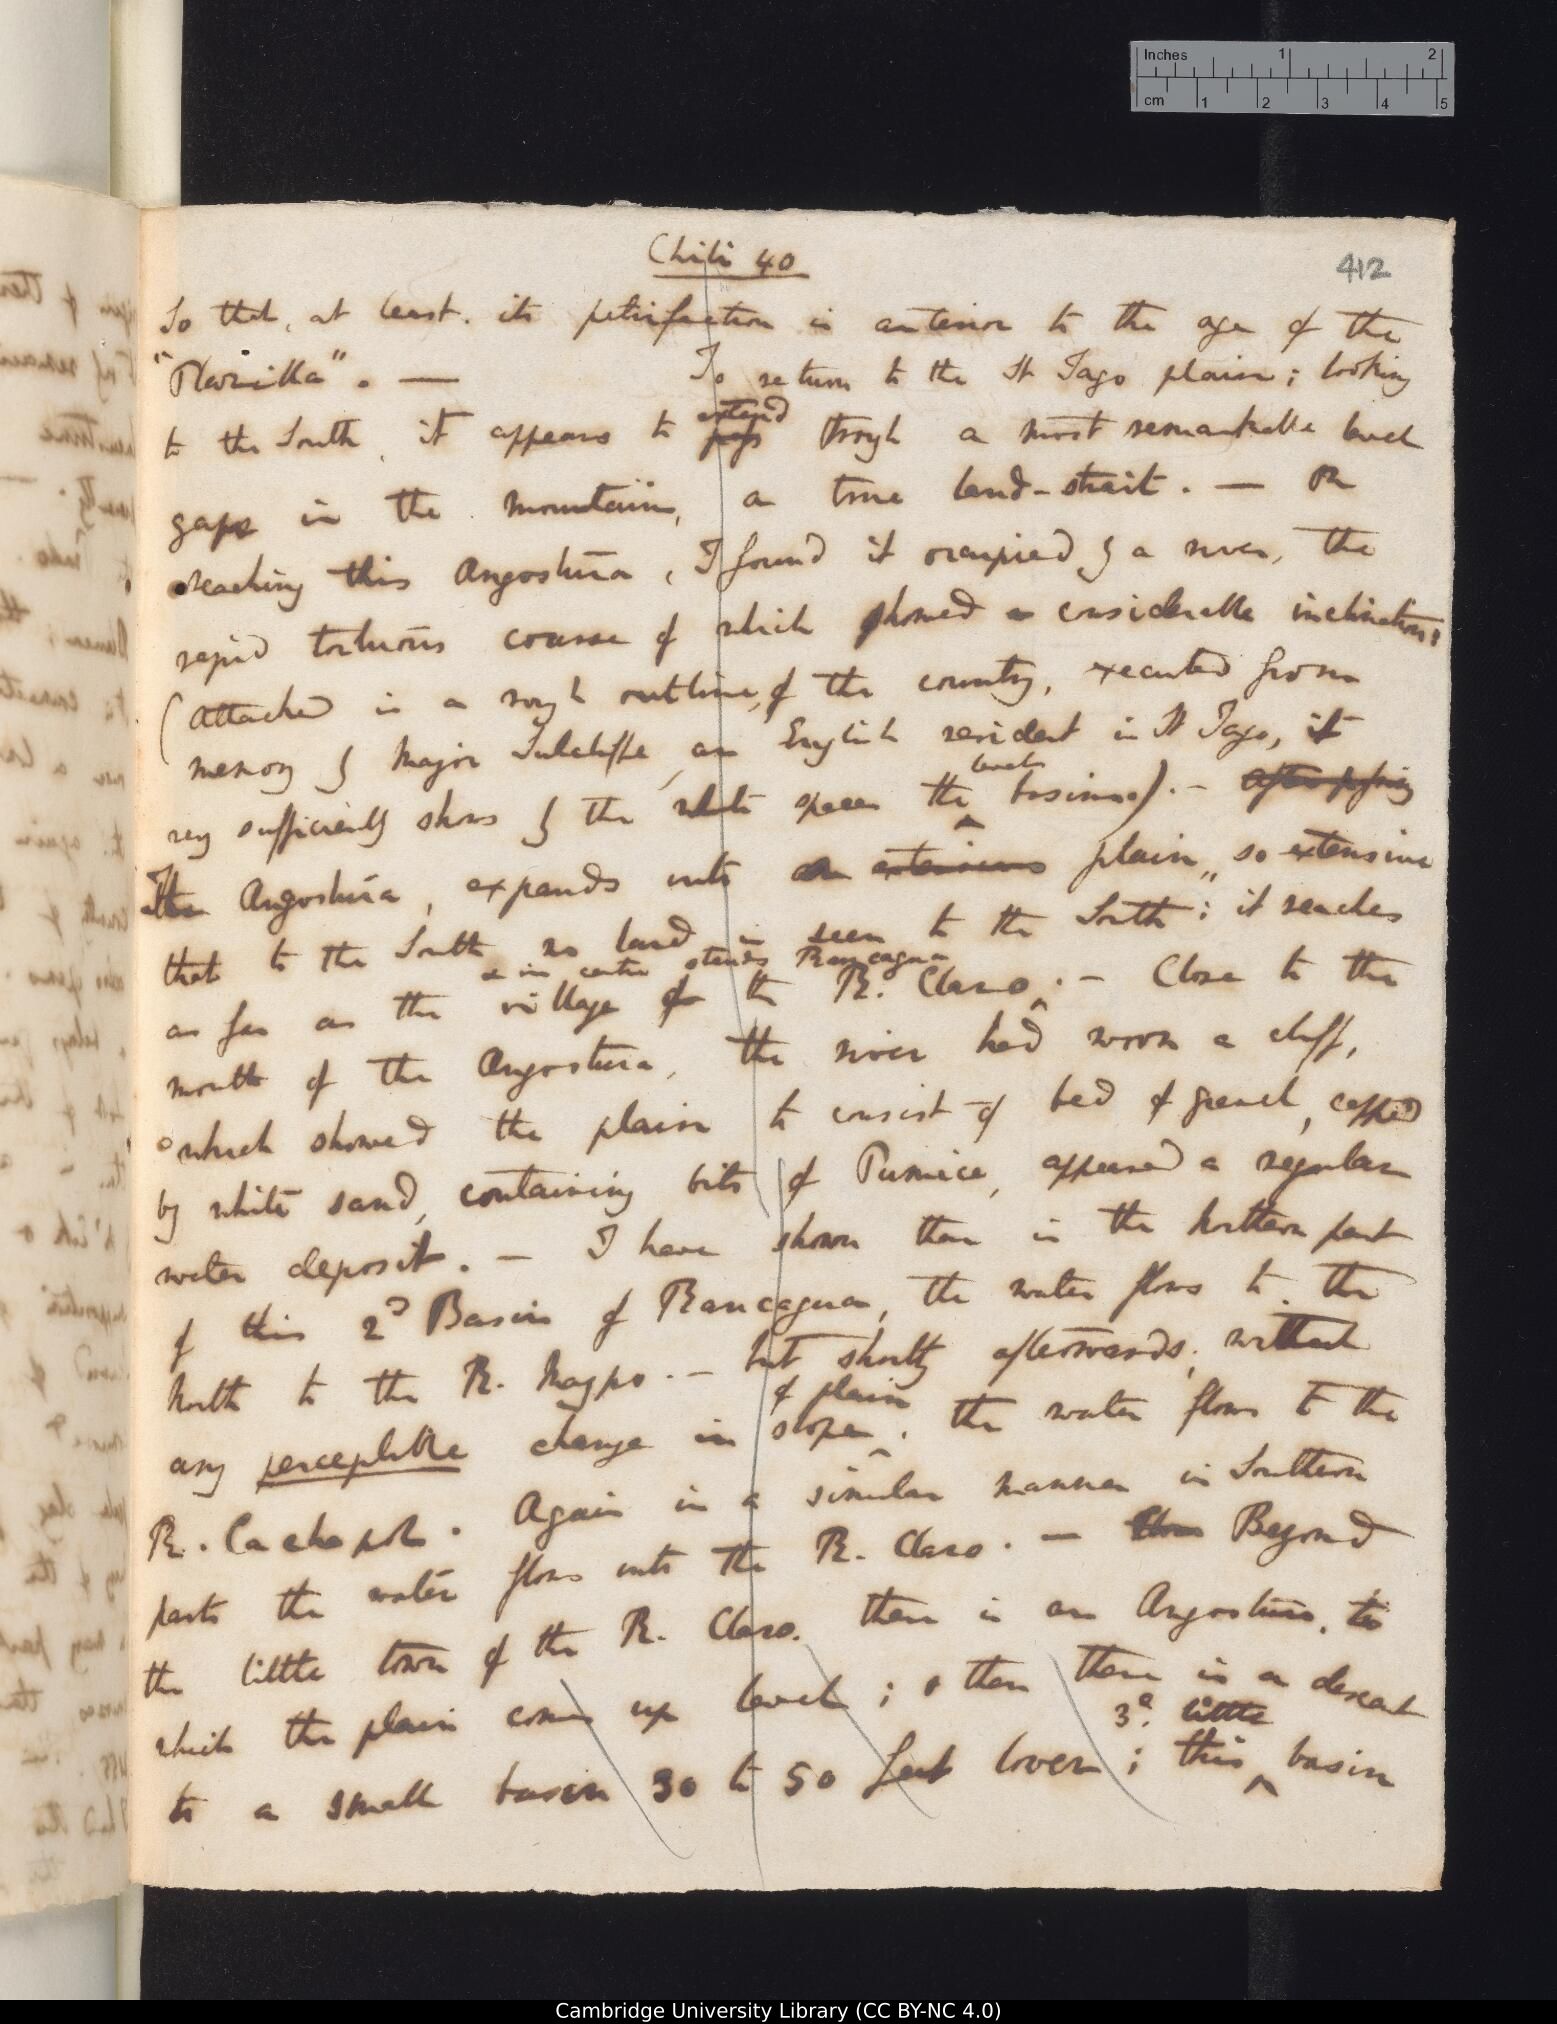 Inches 1 2
cm 1 2 3 4 5
Chili 40
412
So that, at least. its petrifaction is anterior to the age of the
"Plazilla". — To return to the St Jago plain; looking
to the South, it appears to pass extend throgh a most remarkable level
gaps in the mountains, a true land-strait. — On
reaching this Angostura, I found it occupied by a river, the
rapid tortuous course of which showed a considerable inclination:
(Attached is a rough outline, of the country, executed from
memory by Major Sutcliffe, an English resident in St Jago, it
very sufficiently shows by the white spaces the level basins). — After passing
The Angostura, expands into an extensive plain, so extensive
that to the South no land is seen to the South: it reaches
& in centre stands Rancagua
as far as the village of the R. Claro. — Close to the
mouth of the Angostura, the river had worn a cliff,
which showed the plain to consist of bed of gravel, capped
by white sand, containing bits of Pumice, appeared a regular
water deposit. — I have shown that in the Northern part
of this 2d Basin of Rancagua, the water flows to the
North to the R. Maypo. — but shortly afterwards, without
any perceptible change in slope of plain, the water flows to the
R. Cachapol. Again in a similar manner in Southern
parts the water flows into the R. Claro. — Beyond
the little town of the R. Claro. there is an Angostura, to
which the plain comes up level; & then there is a descent
to a small basin 30 to 50 feet lower; this 3d. little basin
Cambridge University Library (CC BY-NC 4.0)